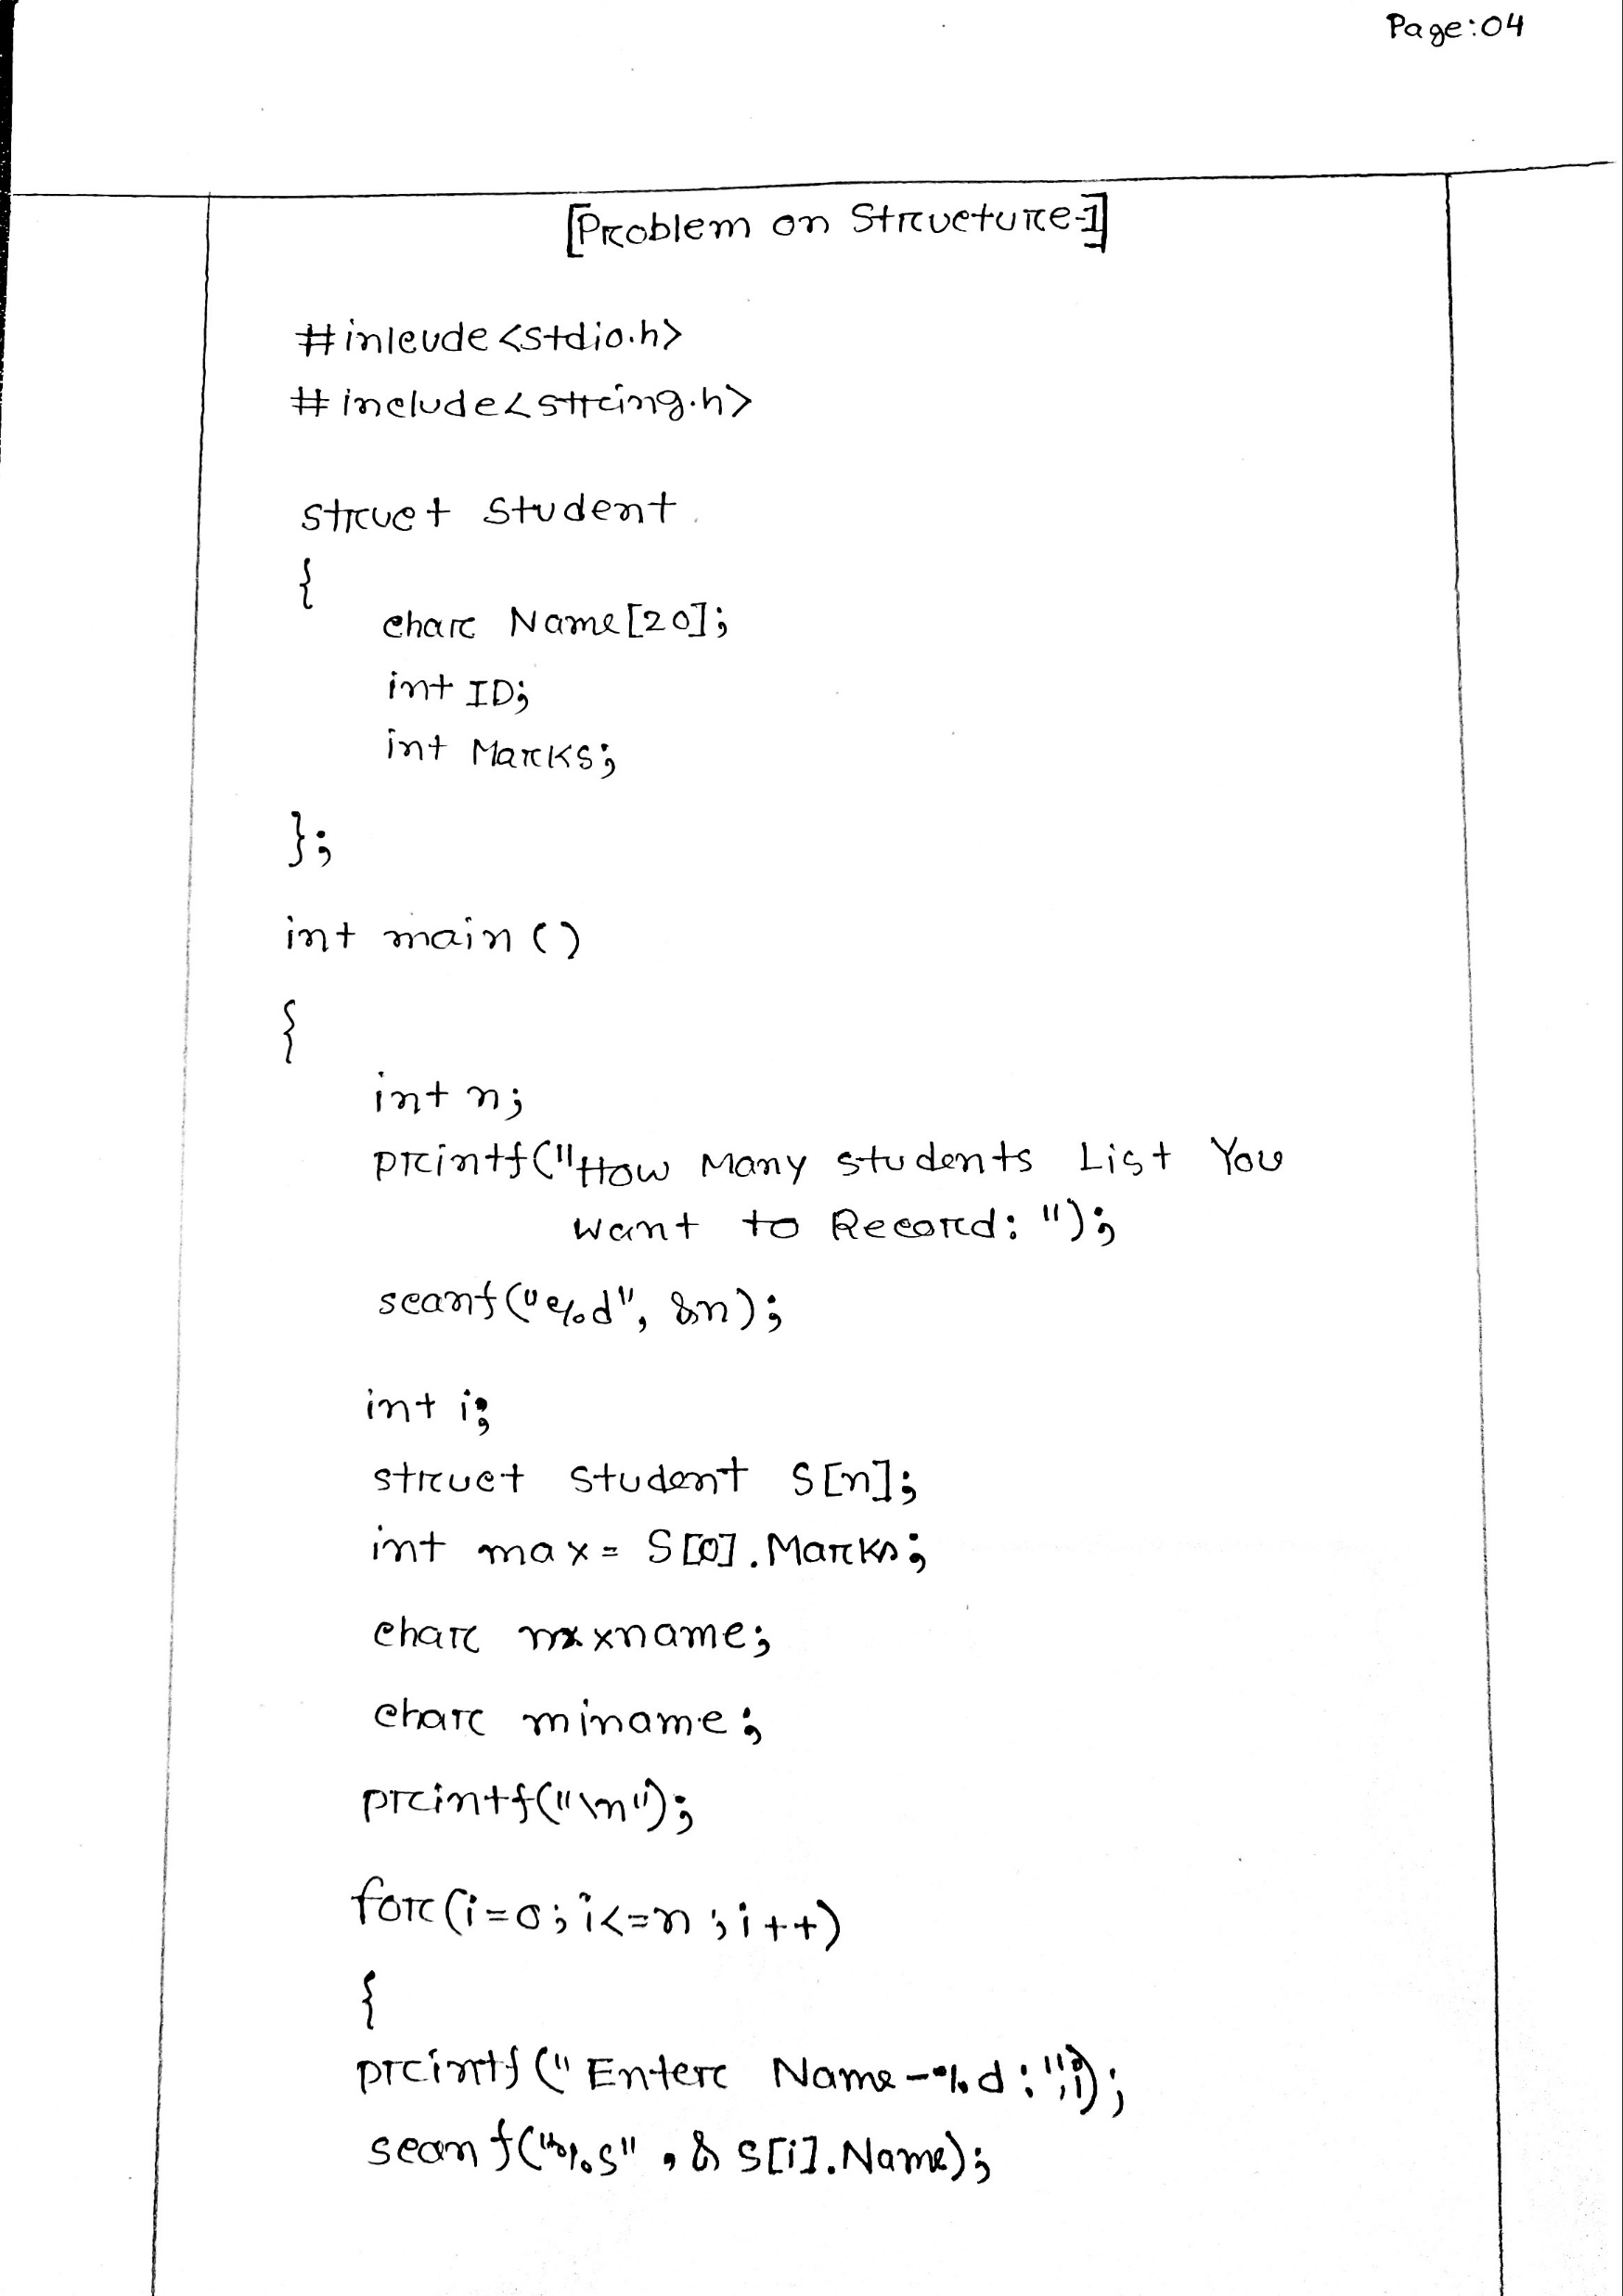 Page:04
[Problem on Structure-1]
#inlcude<stdio.h>
#include<string.h>
struct Student
{
char Name[20];
int ID;
int Marks;
};
int main()
{
int n;
printf("How Many students List You
want to Record: ");
scanf("%d", &n);
int i;
struct Student S[n];
int max = S[0].Marks;
char mxxname;
char miname;
printf("\n");
for(i=0;i<=n;i++)
{
printf("Enter Name-%d:",i);
scanf("%s",& S[i].Name);